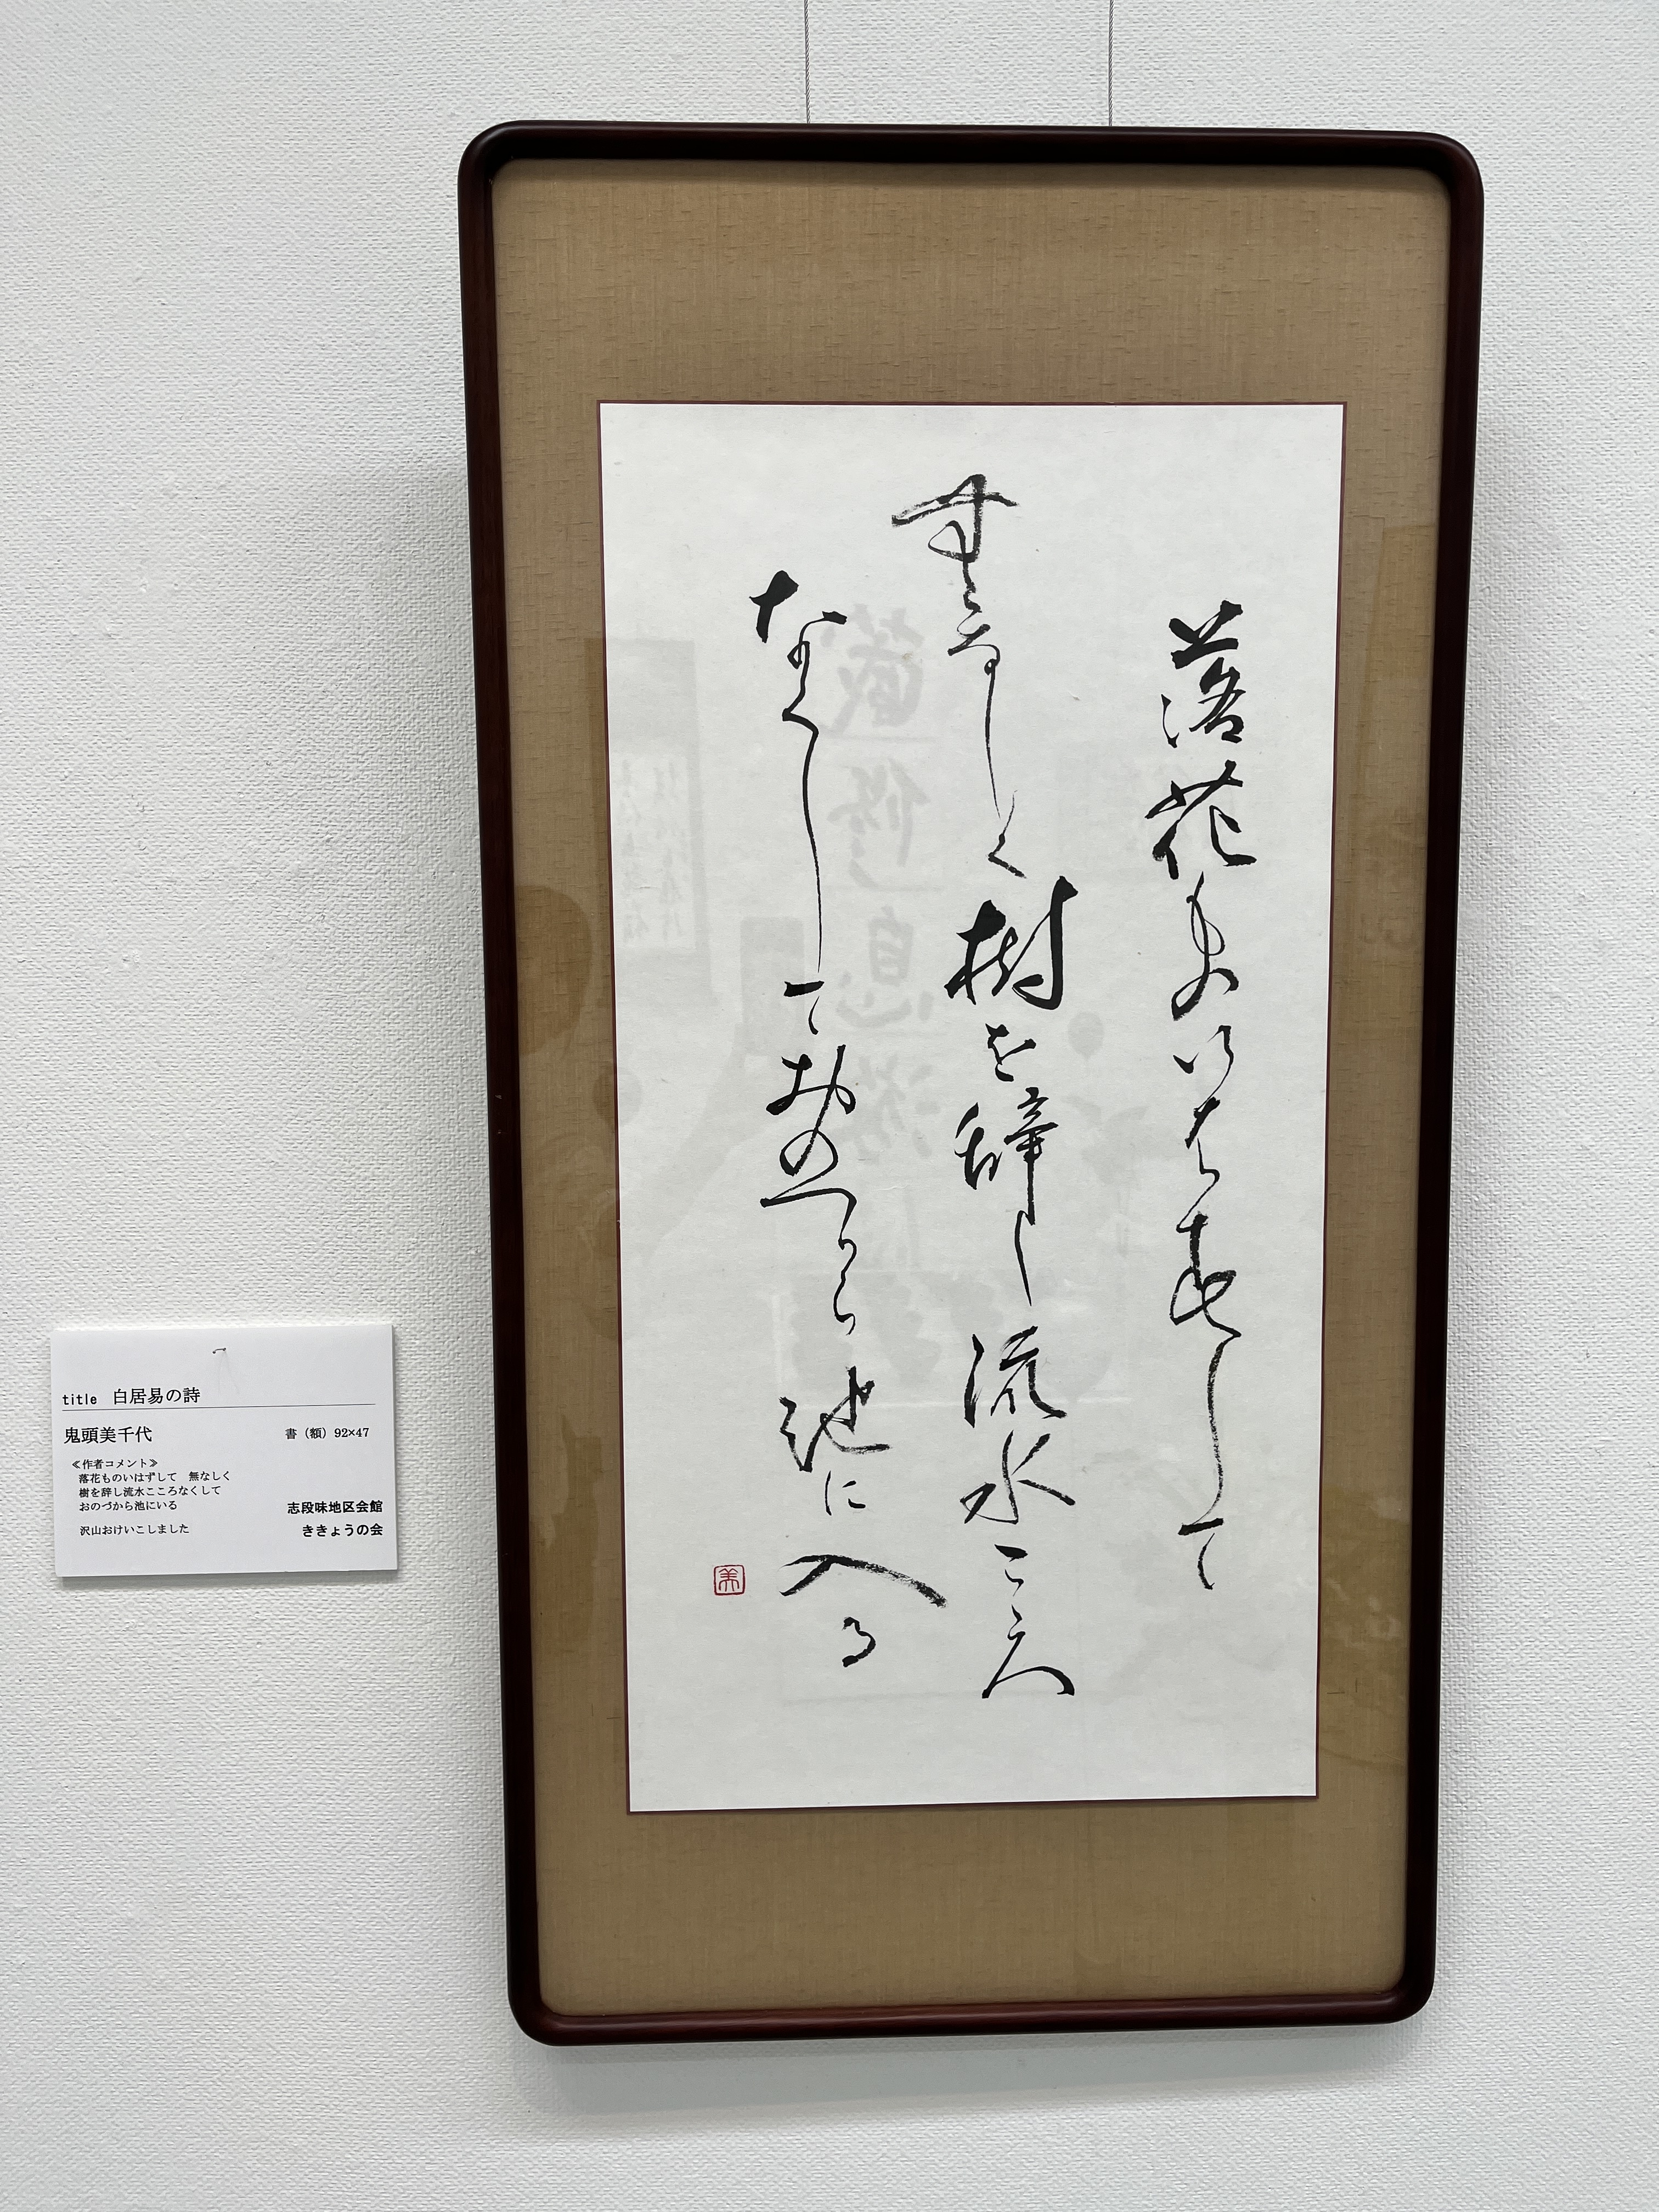 落花ものいはすして
無なしく樹を辞し流水こころ
なくしておのつから池に入る
美
title 白居易の詩
鬼頭美千代 書(額)92×47
≪作者コメント≫
落花ものいはずして 無なしく
樹を辞し流水こころなくして
おのづから池にいる
沢山おけいこしました
志段味地区会館
ききょうの会